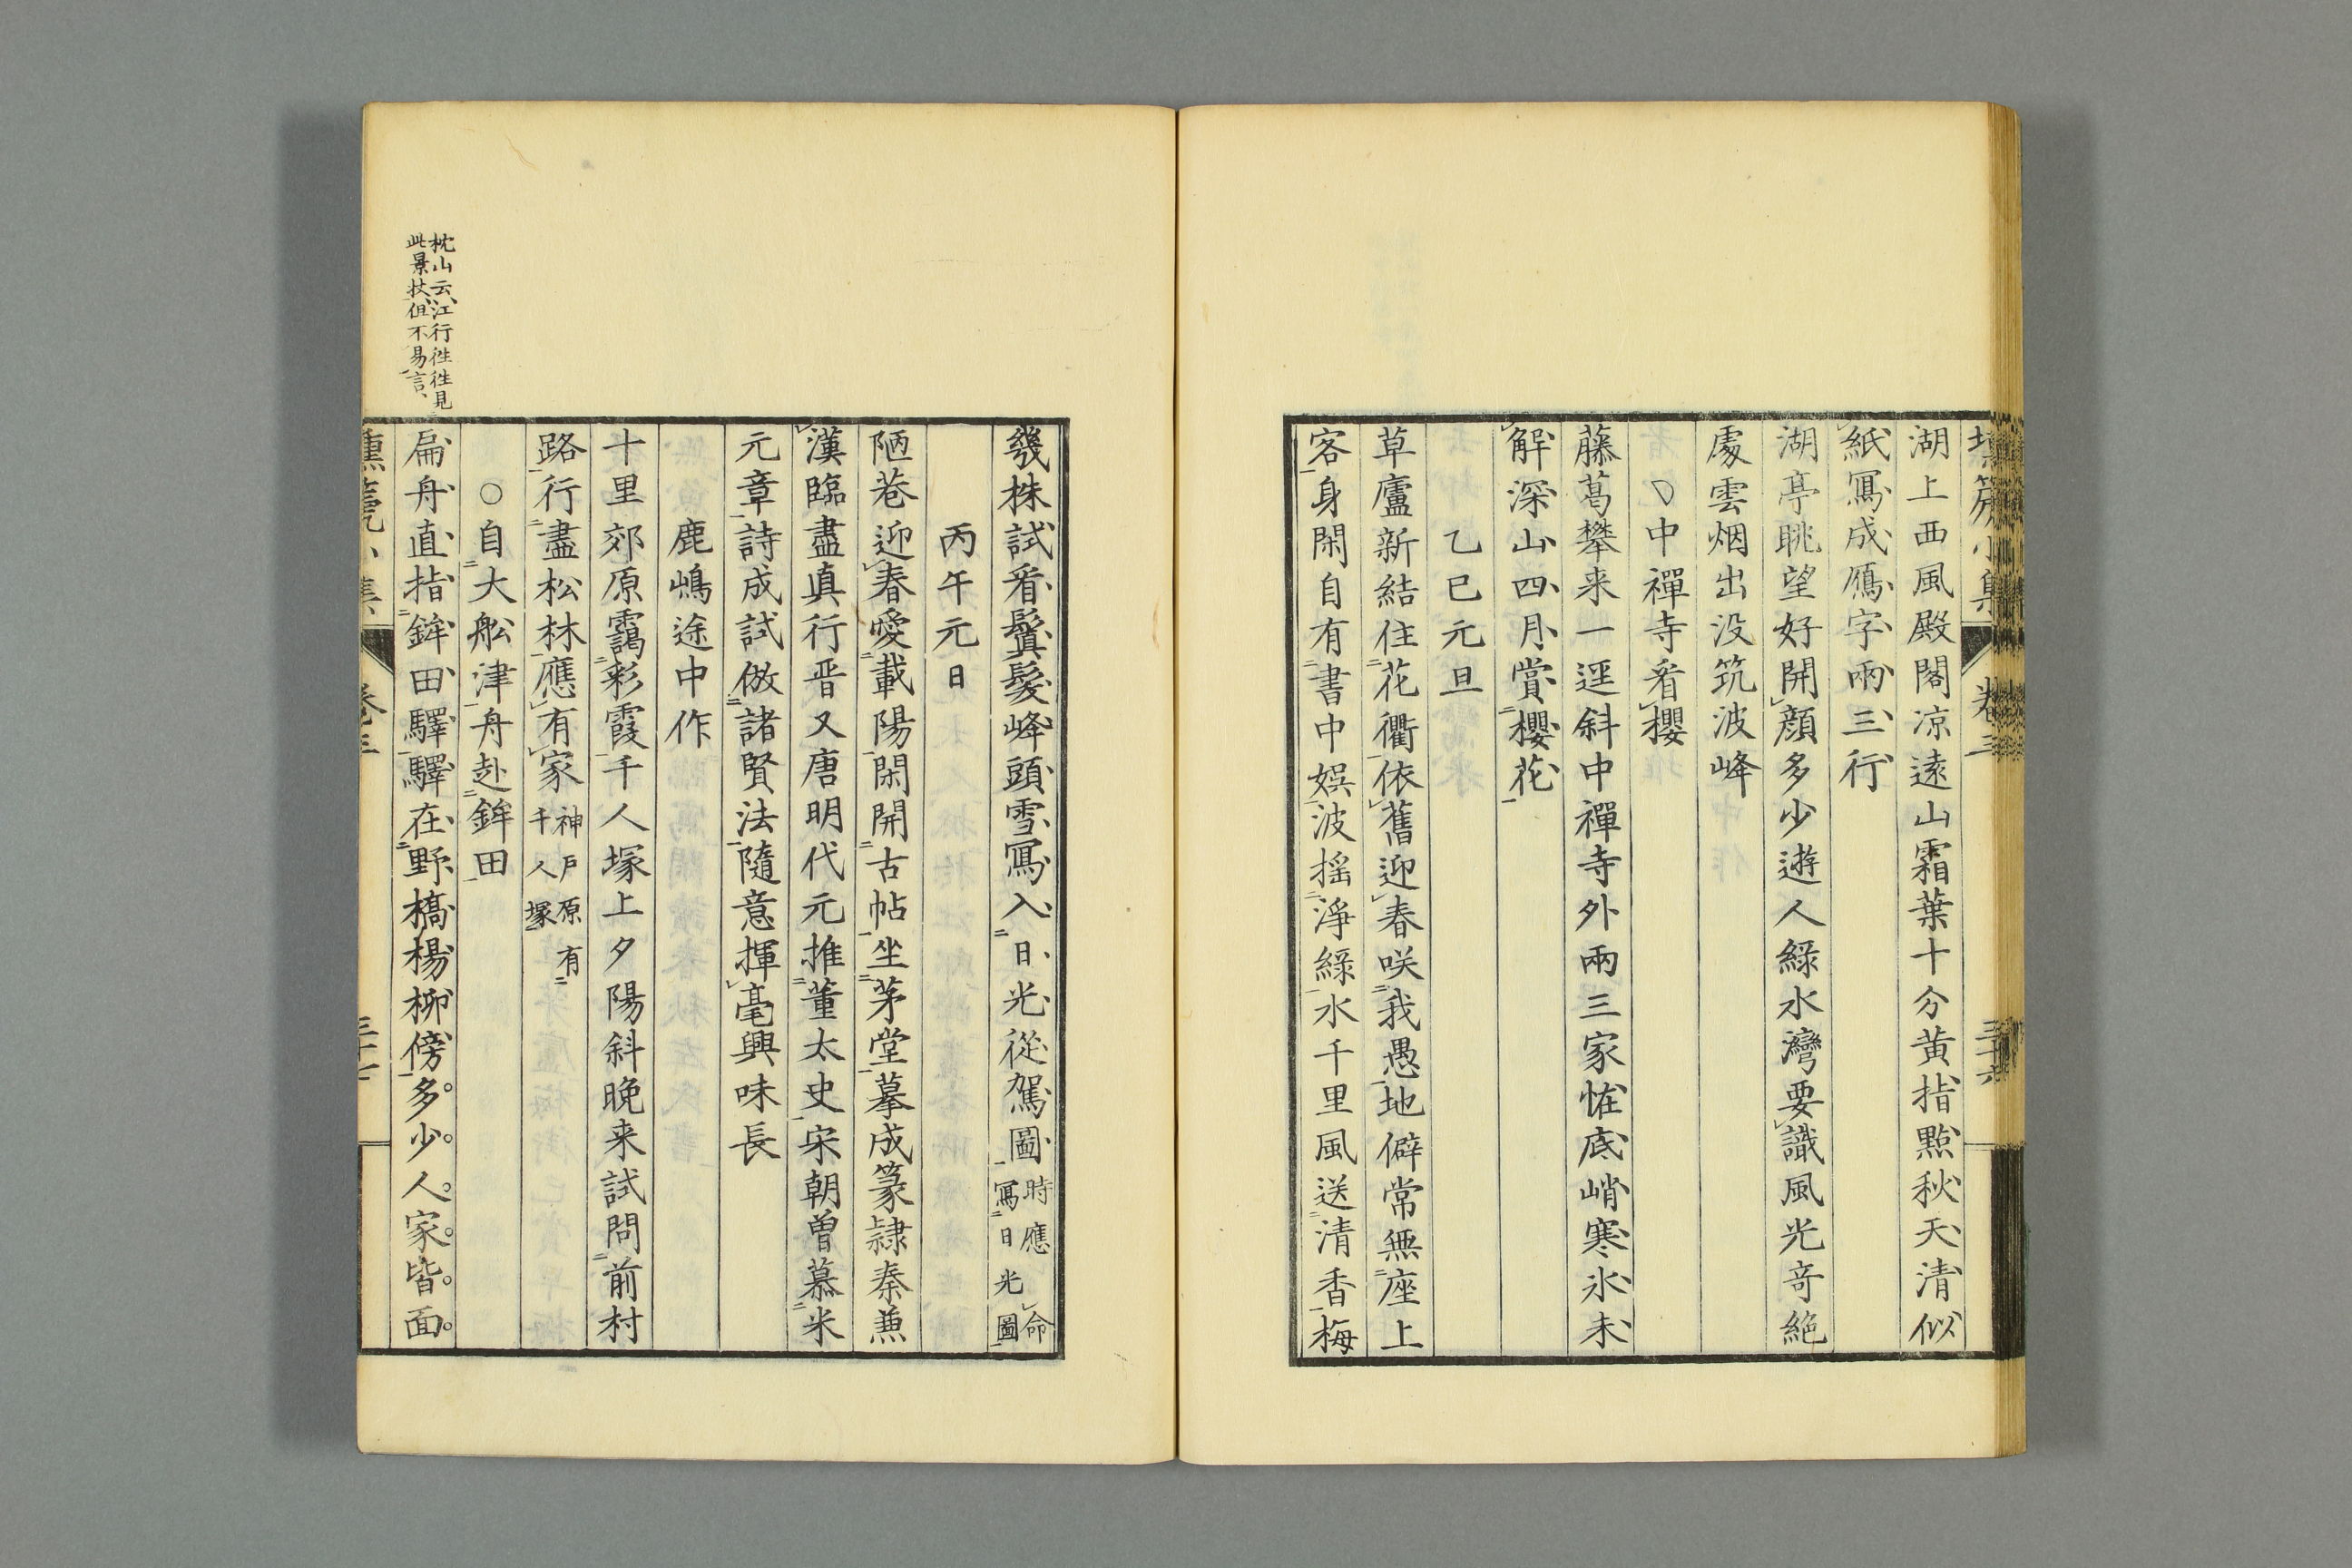 湖上西風殿閣凉遠山霜葉十分黄指點秋天清似
紙寫成鴈字兩三行
湖亭眺望好開顔多少遊人綠水灣要識風光竒絶
處雲烟出没筑波峰
○中禪寺看櫻
藤葛攀来一逕斜中禪寺外兩三家恠底峭寒氷未
解深山四月賞櫻花
乙巳元旦
草廬新結住花衢依舊迎春咲我愚地僻常無座上
客身閑自有書中娯波揺淨綠水千里風送清香梅
幾株試看鬒髮峰頭雪寫入日光從駕圖時應命寫日光圖
丙午元日
陋巷迎春愛載陽閑開古帖坐茅堂摹成篆隷秦兼
漢臨盡真行晋又唐明代元推董太史宋朝曽慕米
元章詩成試倣諸賢法隨意揮毫興味長
鹿嶋途中作
十里郊原靄彩霞千人塚上夕陽斜晩来試問前村
路行盡松林應有家神戸原有千人塚
○自大舩津舟赴鉾田
枕山云江行徃徃見
此景状但不易言
扁舟直指鉾田驛驛在野橋楊柳傍多少人家皆面
卷三
三十六